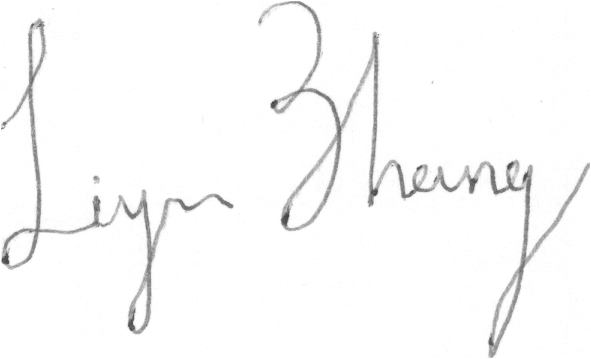 Liyun Zhang